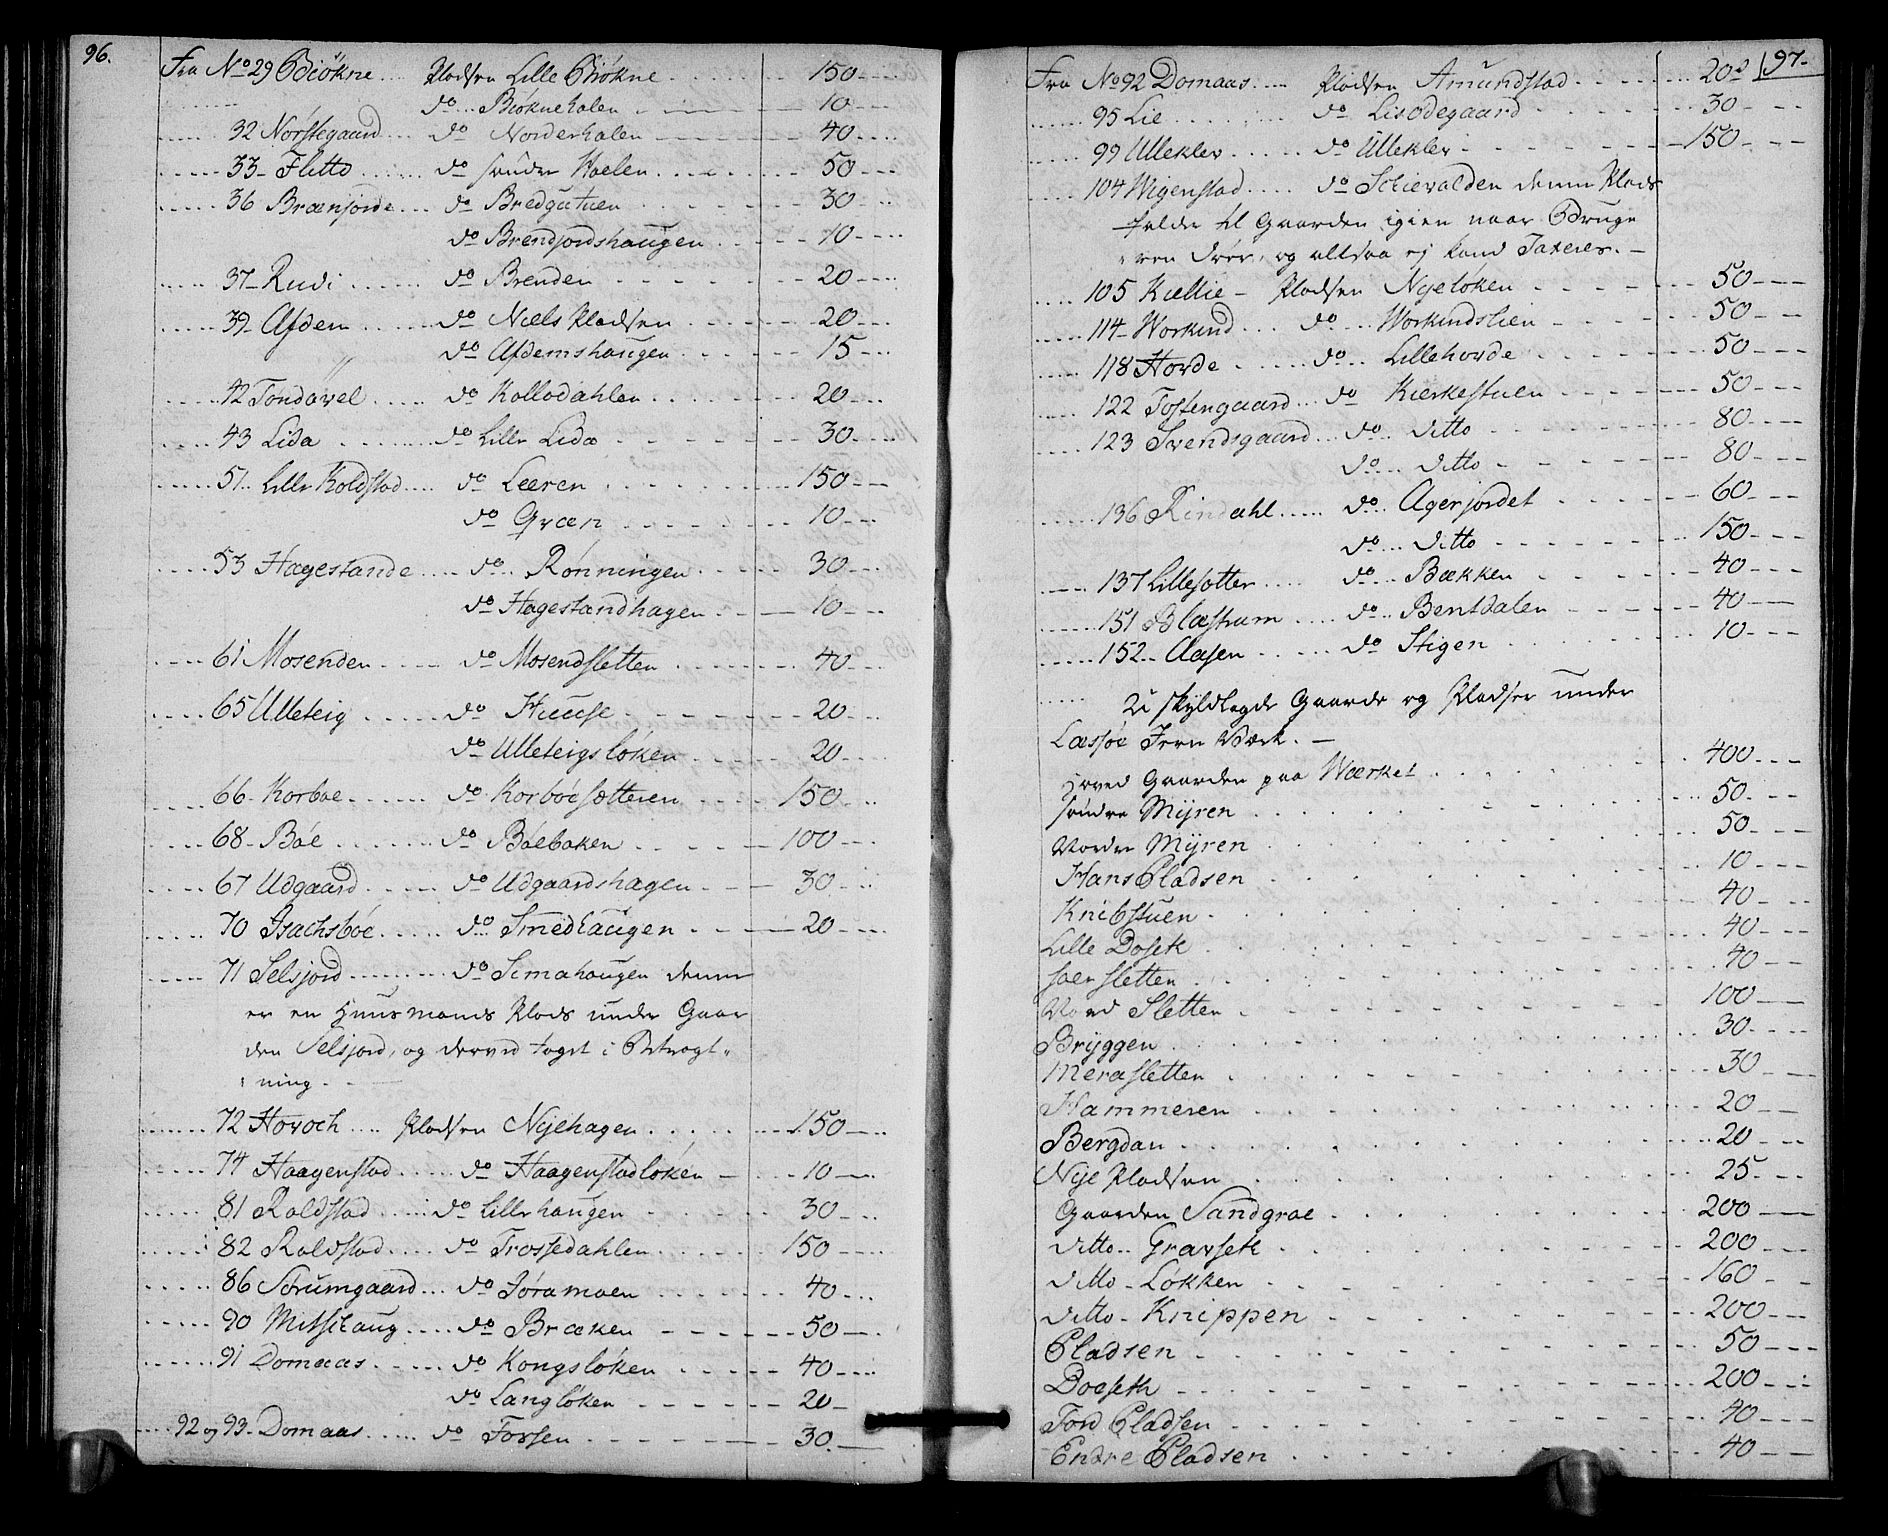 96.
Fra No 29 Biökne .... Pladsen Lille Biökne ........ 150 ....
........ do ... Biöknehalen ........ 10 ....
...... 32 Norstegaard ... do Norderhalen ........ 40 ....
...... 33 - Flitto ...... do söndre Haelen ........ 50 ....
...... 36 Brænjorde ... do Bredgutuen ........ 30 ....
do Brendjordshaugen ........ 10 ....
...... 37 - Rudi ...... do Brenden ........ 20 ....
...... 39 - Afdem ...... do Niels Pladsen ........ 20 ....
do Afdemshaugen ........ 15 ....
...... 42 Tondavel ...... do Kollodahlen ........ 20 ....
...... 43 Lida ...... do Lille Lida ........ 30 ....
...... 51 .. Lille Koldstad .... do Leeren ........ 150 ....
do Qvæn ........ 10 ....
..... 53 Hagestande .... do .. Rönningen ........ 30 ....
do Hagestandhagen ........ 10 ....
..... 61 Mosenden ..... do Mosendsletten ........ 40 ....
..... 65 Ulleteig ..... do Huuse ........ 20 ....
do Ulleteigslöken ........ 20 ....
..... 66 - Korboe ...... do Korböesætteren ........ 150 ....
..... 68 - Böe ...... do Böebaken ........ 100 ....
..... 67 Udgaard ...... do Udgaardshagen ........ 30 ....
..... 70 Isachsböe ..... do Smedhaugen ........ 20 ....
..... 71 Selsjord ........ do Simahaugen denne
er en Huusmands Plads under Gaar
den Selsjord, og derved taget i Betragt„
„ning. -
...... 72 Hovoch .... Pladsen Nyehagen ........ 150 ....
..... 74 Haagenstad ..... do Haagenstadlöken ........ 10 ....
..... 81 Raldstad ..... do Lillehaugen ........ 30 ....
..... 82 Raldstad ..... do Trossedahlen ........ 150 ....
..... 86 Sörumgaard ... do Jöramoen ........ 40 ....
..... 90 Mitshaug .... do Bræken ........ 50 ....
..... 91 Domaas ..... do Kongslöken ........ 40 ....
do Langlöken ........ 20 -
.... 92 og 93 - Domaas ..... do Forsen ........ 30 ....
97 -
Fra No 92 Domaas .... Pladsen Amundstad ........ 20
...... 95 Lie ........ do Lisödegaard ........ 30 ....
...... 99 Ullekler ..... do Ullekler ........ 150 ....
..... 104 Wigenstad .... do Schievalden denne Plads
falder til Gaarden igien naar Bruge
„ren döer, og altsaa ej kand Taxeres. -
.... 105 Kiellie - Pladsen Nyelöken ........ 50 ....
..... 114 - Workind ... do ... Workindslien ........ 50 ....
..... 118 Horde ..... do .. Lillehorde ........ 50 ....
..... 122 Tostengaard ... do Kierkestuen ........ 50 ....
..... 123 Svendsgaard ... do .. ditto ........ 80 ....
do .... ditto ........ 80 ....
...... 136 Rindahl ..... do .. Agerjordet ........ 60 ....
do ... ditto ........ 150 ....
..... 137 Lillesætter ..... do ... Bækken ........ 40 ....
..... 151 Blæstrum ..... do .. Bentdalen ........ 40 ....
..... 152 .. Aasen ...... do Stigen ........ 10 ....
..... U skyldlagde Gaarde og Pladser under
Læssöe Jern Værk. -
Hoved Gaarden paa Wærket ........ 400 ....
söndre Myren ........ 50 ....
Nordre Myren ........ 50 ....
Hans Pladsen ........ 10 ....
Knibstuen ........ 40 ....
Lille Dosek ........ 40 ....
soer sletten ........ 40 ....
Nord Sletten ........ 100 ....
Bryggen ........ 30 ....
Merasletten ........ 30 ....
Hammeren ........ 20 ....
Bergdan ........ 20 ....
Nye Pladsen ........ 25 ....
Gaarden Sandgroe ........ 200 ....
ditto .. Gravsek ........ 200 ....
ditto - Løkken ........ 160 ....
ditto - Knippen ........ 200 ....
Pladsen ........ 50 ....
Doeseth ........ 200 ....
Tord Pladsen ........ 40 ....
Endre Pladsen ........ 40 ....